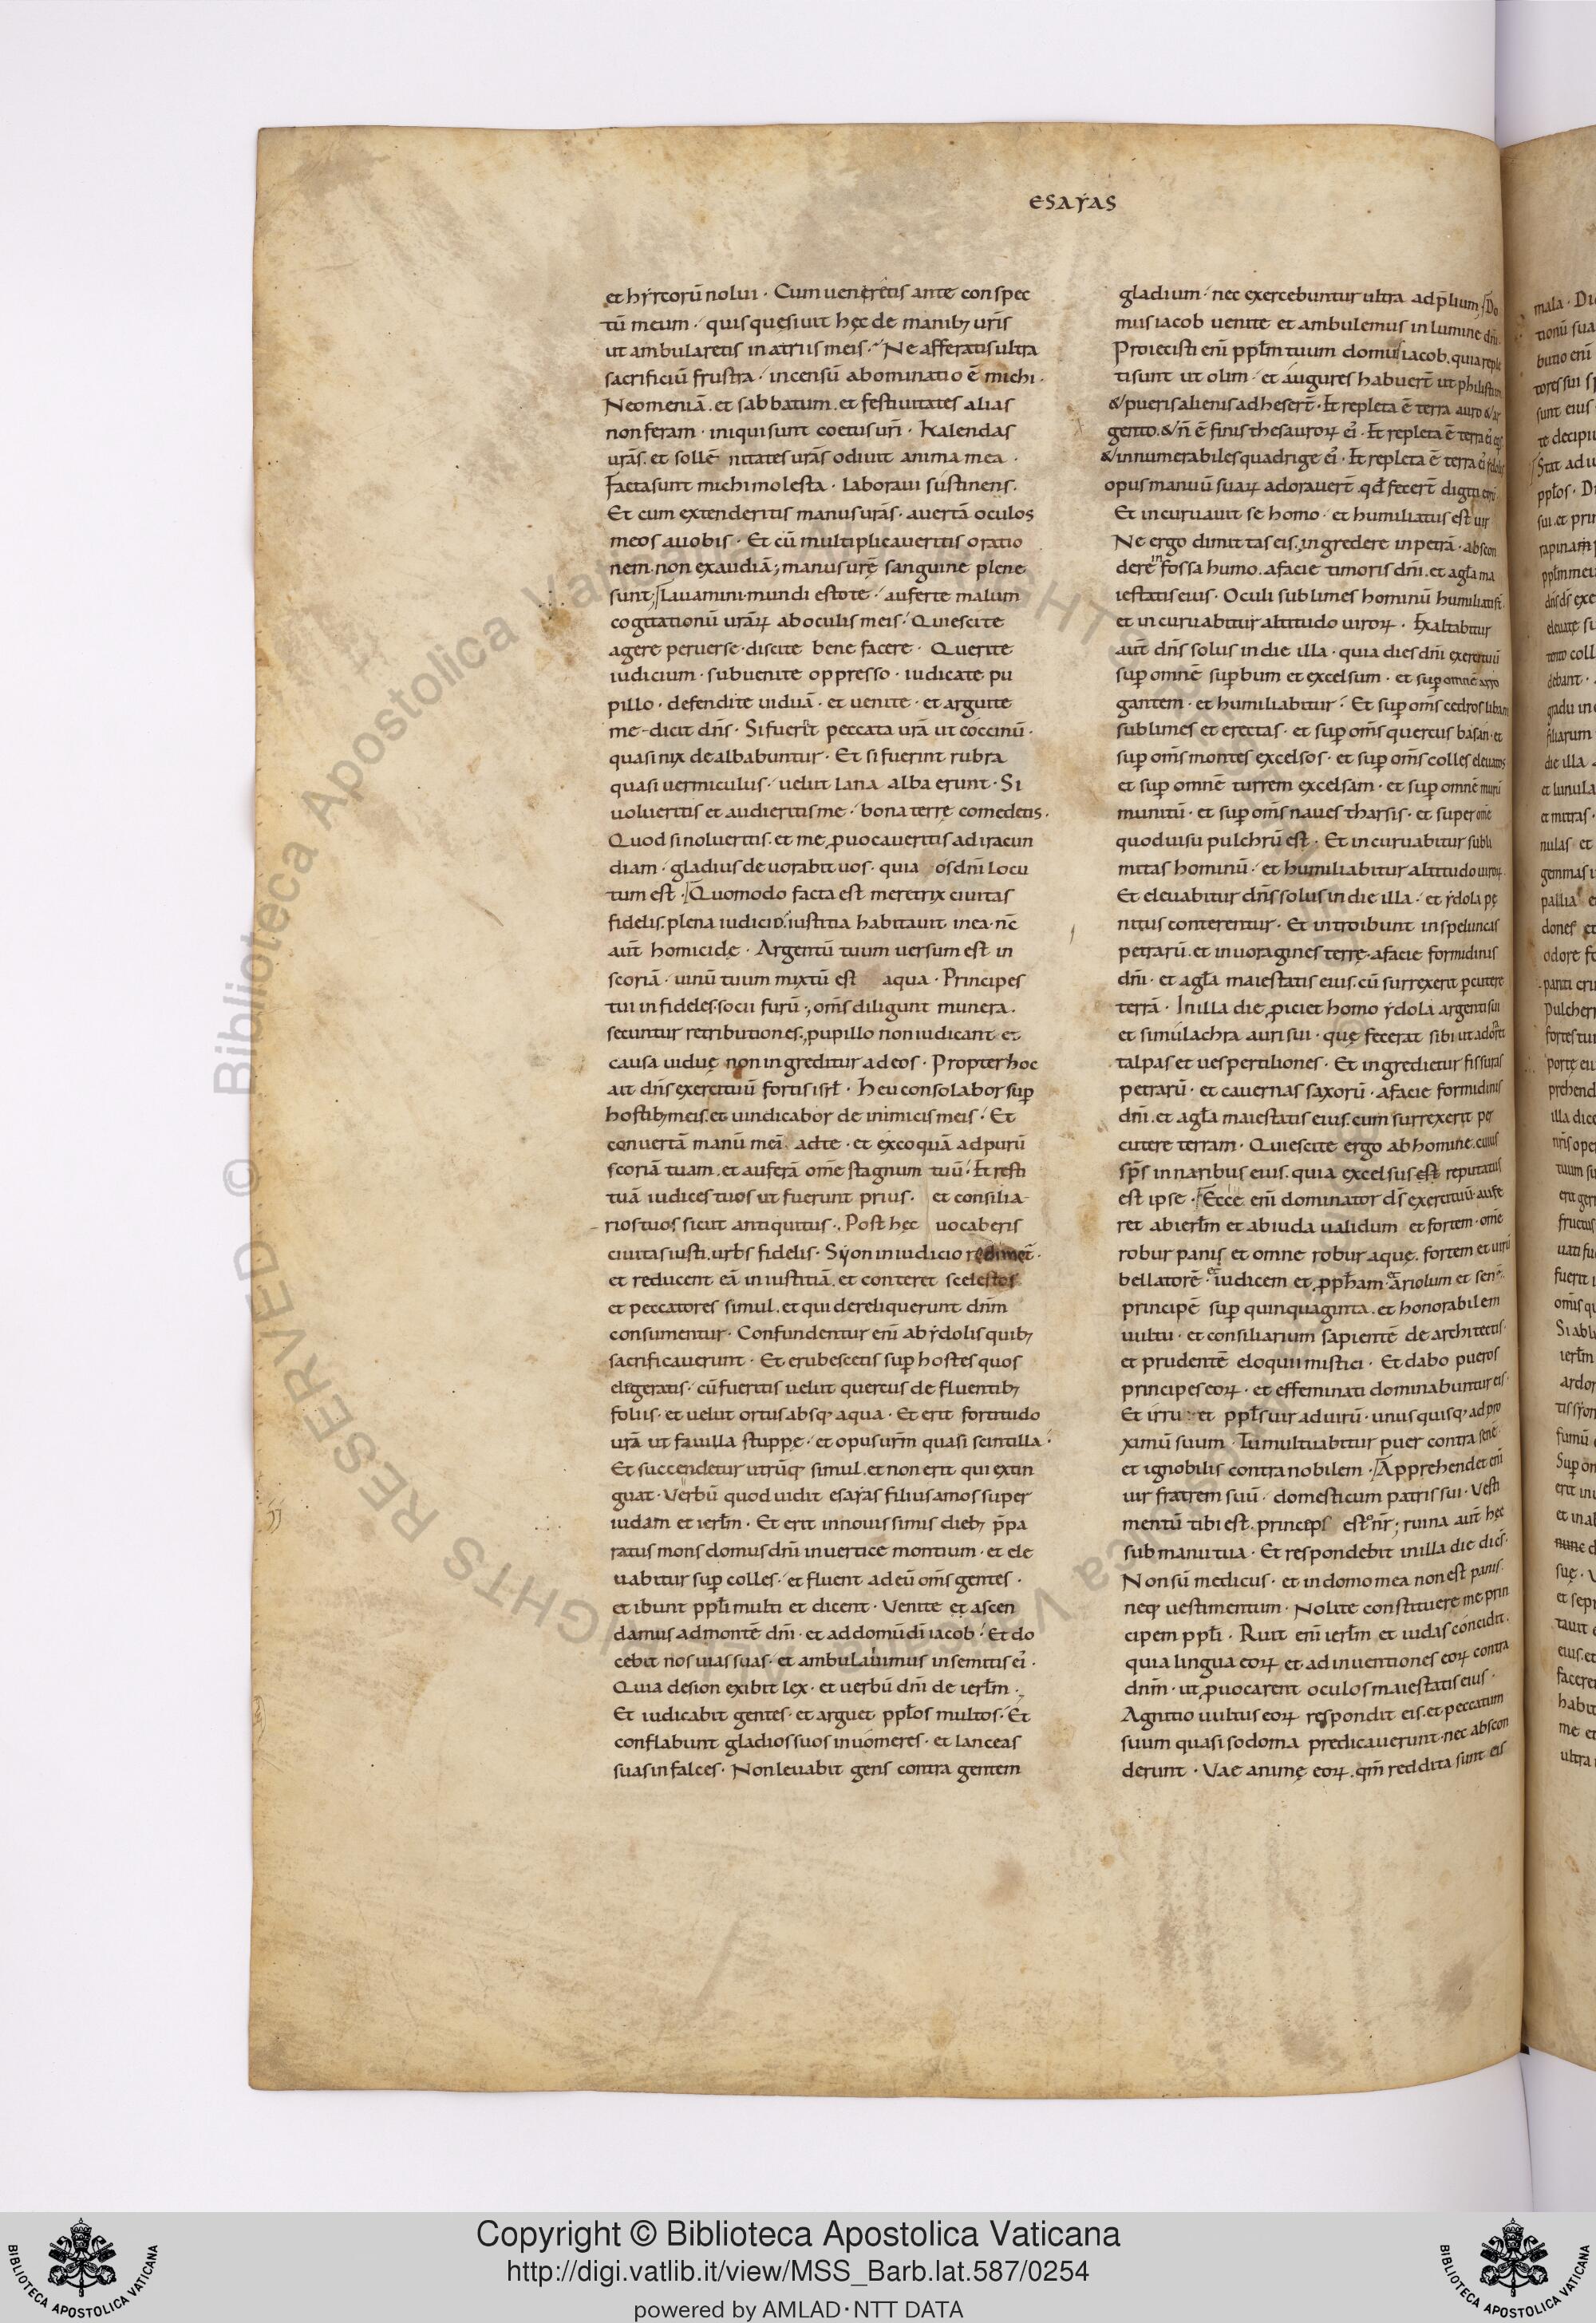 ESAẎAS
et hẏrcorū nolui · Cum ueneretis ante conspec
tū meum · quis quęsiuit hęc de manibꝫ urīs
ut ambularetis in atriis meis · Ne afferatis ultra
sacrificiū frustra · incensū abominatio ē michi ·
Neomeniā . et sabbatum . et festiuitates alias
non feram · iniqui sunt coetus urī · Kalendas
urās . et sollē nitates urās odiuit anima mea ·
Facta sunt michi molesta · laboraui sustinens .
Et cum extenderitis manus urās · auertā oculos
meos a uobis · Et cū multiplicaueritis oratio
nem . non exaudiā ; manus urę̄ sanguine plene
sunt ; Lauamini · mundi estote · auferte malum
cogitationū urārꝝ ab oculis meis · Quiescite
agere peruerse · discite bene facere · Querite
iudicium · subuenite oppresso · iudicate pu
pillo · defendite uiduā · et uenite · et arguite
me · dicit dn̄s · Si fuerīt peccata urā ut coccinū ·
quasi nix dealbabuntur · Et si fuerint rubra
quasi uermiculus · uelut lana alba erunt · Si
uolueritis et audieritis me · bona terrę comedetis ·
Quod si nolueritis . et me ꝓuocaueritis ad iracun
diam · gladius deuorabit uos · quia os dn̄i locu
tum est · Quomodo facta est meretrix ciuitas
fidelis . plena iudicio · iustitia habitauit in ea · nc̄
aut̄ homicidę · Argentū tuum uersum est in
scoriā · uinū tuum mixtū est aqua · Principes
tui infideles . socii furū ; om̄s diligunt munera .
secuntur retributiones ; pupillo non iudicant et
causa uiduę non ingreditur ad eos · Propter hoc
ait dn̄s exercituū fortis isrł · Heu consolabor suꝑ
hostibꝫ meis . et uindicabor de inimicis meis · Et
conuertā manū meā ad te · et excoquā ad purū
scoriā tuam . et auferā om̄e stagnum tuū · Et resti
tuā iudices tuos ut fuerunt prius · et consilia
rios tuos sicut antiquitus · Post hęc uocaberis
ciuitas iusti . urbs fidelis · Sẏon in iudicio redimet̄ ·
et reducent eā in iustitiā . et conteret scelestos
et peccatores simul . et qui dereliquerunt dn̄m
consumentur · Confundentur eni̅ ab ẏdolis quibꝫ
sacrificauerunt · Et erubescetis suꝑ hostes quos
elegeratis · cū fueritis uelut quercus defluentibꝫ
foliis · et uelut ortus absqꝫ aqua · Et erit fortitudo
urā ut fauilla stuppę · et opus urm̄ quasi scintilla ·
Et succendetur utrūqꝫ simul . et non erit qui extin
guat · Verbū quod uidit esaẏas filius amos super
iudam et ierłm · Et erit in nouissimis diebꝫ p̄pa
ratus mons domus dn̄i in uertice montium · et ele
uabitur suꝑ colles · et fluent ad eū om̄s gentes ·
et ibunt pplī multi et dicent · Venite et ascen
damus ad montē dn̄i · et ad domū dī iacob · Et do
cebit nos uias suas · et ambulauimus in semitis ei᾽ ·
Quia de sion exibit lex · et uerbū dn̄i de ierłm ·
Et iudicabit gentes · et arguet pplos multos · Et
conflabunt gladios suos in uomeres · et lanceas
suas in falces · Non leuabit gens contra gentem
gladium · nec exercebuntur ultra ad p̄lium ; Do
mus iacob uenite et ambulemus in lumine dn̄i .
Proiecisti eni̅ pplm tuum domū iacob . quia reple
ti sunt ut olim · et augures habuert̄ ut philistiim
&/ pueris alienis adhesert̄ · Et repleta ē terra auro &/ ar
gento . &/ n̄ ē finis thesaurorꝝ ei᾽ · Et repleta ē terra ei᾽ eqs̄
&/ innumerabiles quadrige ei᾽ · Et repleta ē terra ei᾽ idolis
opus manuū suarꝝ adorauert̄ . qđ fecert̄ digiti eorꝝ
Et incuruauit se homo · et humiliatus est uir
Ne ergo dimittas eis . ingredere in petrā · abscon
dere in fossa humo . a facie timoris dn̄i . et a głā ma
iestatis eius · Oculi sublimes hominū humiliati st̄ .
et incuruabitur altitudo uirorꝝ · Exaltabitur
aut̄ dn̄s solus in die illa · quia dies dn̄i exercituū
suꝑ omnē suꝑbum et excelsum · et suꝑ omnē arro
gantem · et humiliabitur · Et suꝑ om̄s cedros libani
sublimes et erectas · et suꝑ om̄s quercus basan · et
suꝑ om̄s montes excelsos · et suꝑ om̄s colles eleuatos
et suꝑ omnē turrem excelsam · et suꝑ omnē murū
munitū · et suꝑ om̄s naues tharsis · et super om̄e
quod uisu pulchrū est · Et incuruabitur subli
mitas hominū · et humiliabitur altitudo uirorꝝ .
Et eleuabitur dn̄s solus in die illa · et ẏdola pę
nitus conterentur · Et introibunt in speluncas
petrarū . et in uoragines terrę . a facie formidinis
dn̄i · et a głā maiestatis eius . cū surrexerit ꝑcutere
terrā · In illa die ꝓiciet homo ẏdola argenti sui
et simulachra auri sui · quę fecerat sibi ut adoraret
talpas et uespertiliones · Et ingredietur fissuras
petrarū · et cauernas saxorū · a facie formidinis
dn̄i . et a głā maiestatis eius . cum surrexerit per
cutere terram · Quiescite ergo ab homine . cuius
sps̄ in naribus eius . quia excelsus est reputatus
est ipse · Ecce eni̅ dominator ds̄ exercituū · aufe
ret a bierłm et abiuda ualidum et fortem · om̄e
robur panis et omne robur aquę . fortem et uirū
bellatorē · et iudicem et ꝓpham · et ariolum et senē .
principē suꝑ quinquaginta . et honorabilem
uultu · et consiliarium sapientē de architectis ·
et prudentē eloquii mistici · Et dabo pueros
principes eorꝝ · et effeminati dominabuntur eis ·
Et irru et ppls uir ad uirū · unusquisqꝫ ad pro
ximū suum · Tumultuabitur puer contra senē ·
et ignobilis contra nobilem · Apprehendet eni̅
uir fratrem suū · domesticum patris sui · Vesti
mentū tibi est . princeps esto nr̄ ; ruina aut̄ hęc
sub manu tua · Et respondebit in illa die dicēs .
Non sū medicus · et in domo mea non est panis ·
neqꝫ uestimentum · Nolite constituere me prin
cipem pplī · Ruit eni̅ ierłm et iudas concidit ·
quia lingua eorꝝ et adinuentiones eorꝝ contra
dnm̄ · ut ꝓuocarent oculos maiestatis eius ·
Agnitio uultus eorꝝ respondit eis . et peccatum
suum quasi sodoma predicauerunt . nec abscon
derunt · Vae animę eorꝝ . qm̄ reddita sunt eis
Copyright © Biblioteca Apostolica Vaticana
http://digi.vatlib.it/view/MSS_Barb.lat.587/0254
powered by AMLAD·NTT DATA